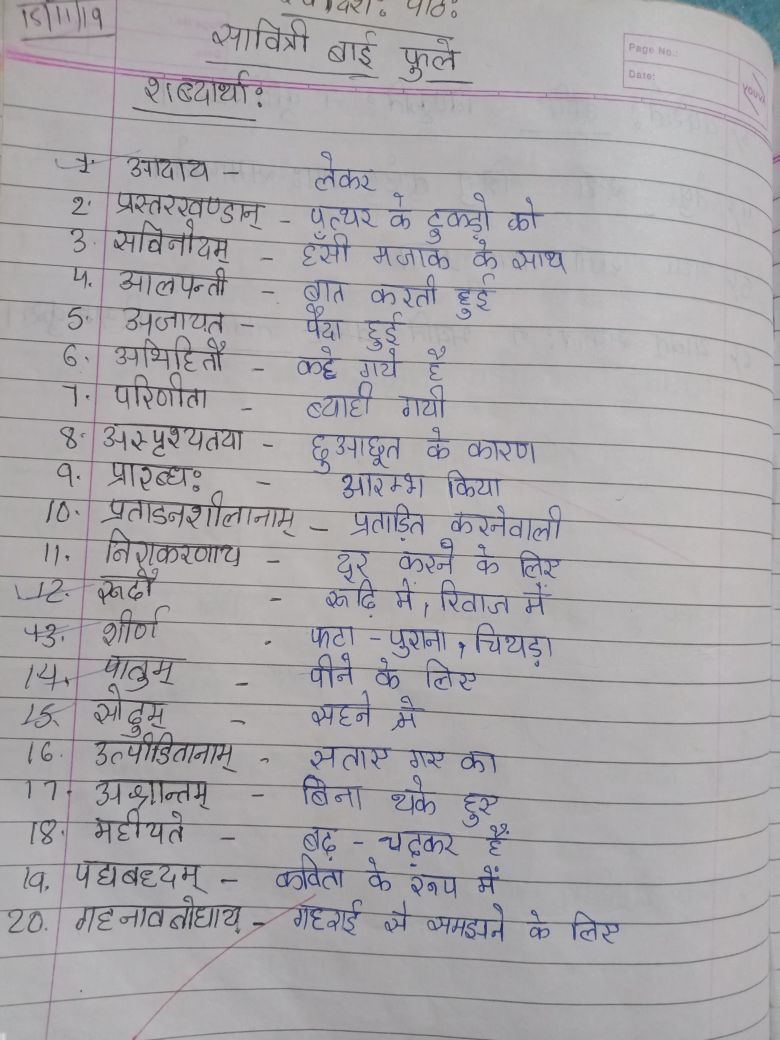 15/11/19
पाठः
सावित्री बाई फुले
Page No.:
Date:
YOUVA
शब्दार्थाः
1. आदाय - लेकर
2. प्रस्तरखण्डान् - पत्थर के टुकड़ो को
3. सविनोदम् - हँसी मजाक के साथ
4. आलपन्ती - बात करती हुई
5. अजायत - पैदा हुई
6. अभिहितौ - कहे गये है
7. परिणीता - ब्याही गयी
8. अस्पृश्यतया - छुआछूत के कारण
9. प्रारब्धः - आरम्भ किया
10. प्रताडनशीलानाम् - प्रताड़ित करनेवाली
11. निराकरणाय - दूर करने के लिए
12. रूढौ - रूढ़ि में, रिवाज में
13. शीर्ण - फटा - पुराना, चिथड़ा
14. पातुम् - पीने के लिए
15. सोढुम् - सहने मे
16. उत्पीडितानाम् - सताए गए का
17. अश्रान्तम् - बिना थके हुए
18. महीयते - बढ़ - चढ़कर हैं
19. पद्यबध्दम् - कविता के रूप में
20. गहनावबोधाय - गहराई से समझने के लिए